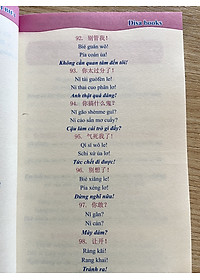 Disa books
92. 别管我!
Bié guǎn wǒ!
Pía coán ủa!
Không cần quan tâm đến tôi!
93. 你太过分了!
Nǐ tài guòfèn le!
Nỉ thai cuo phân lơ!
Anh thật quá đáng!
94. 你搞什么鬼?
Nǐ gǎo shénme guǐ?
Nỉ cảo sấn mơ cuẩy?
Cậu làm cái trò gì đấy?
95. 气死我了!
Qì sǐ wǒ le!
Chi xử ủa lơ!
Tức chết đi được!
96. 别想了!
Bié xiǎng le!
Pía xéng lơ!
Đừng nghĩ nữa!
97. 你敢?
Nǐ gǎn?
Ní cản?
Mày dám?
98. 让开!
Ràng kāi!
Rang khai!
Tránh ra!